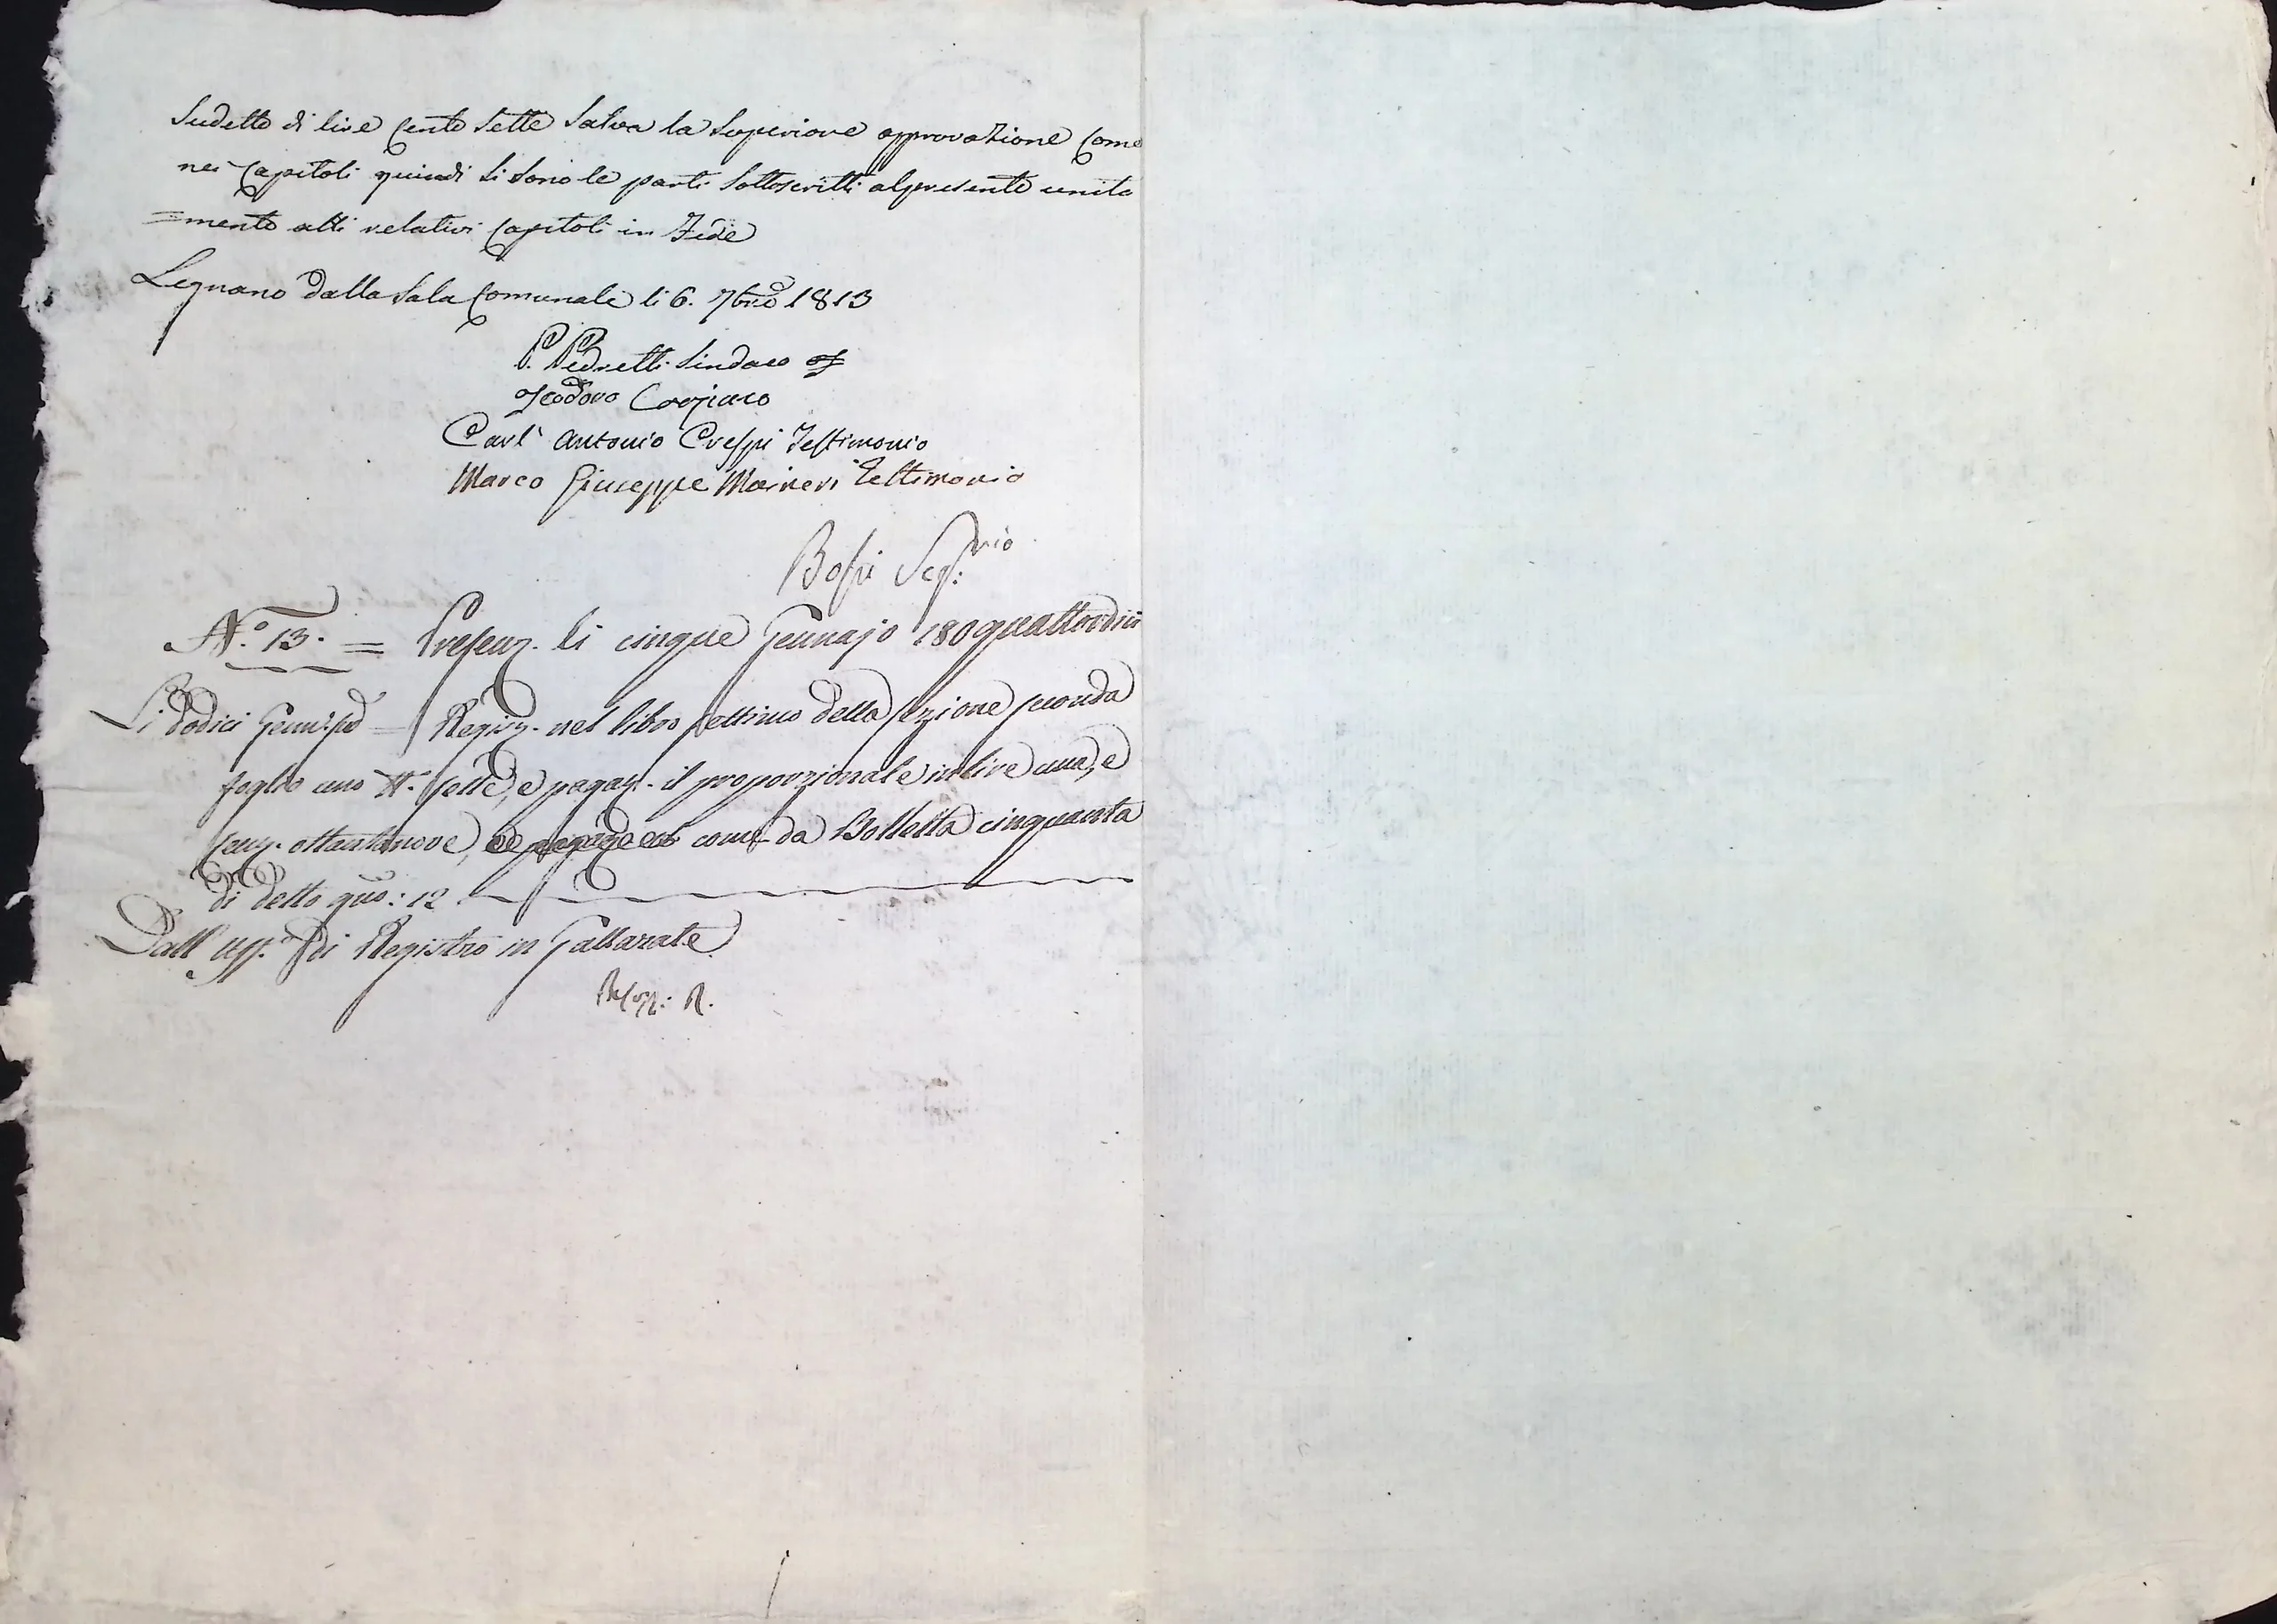 Sudetto di lire Cento Sette Salva la Superiore approvazione Come
nei Capitoli quindi Si Sono le parti Sottoscritti al presente unita
=mente alli relativi Capitoli in Fede
Legnano dalla Sala Comunale li 6. 7bre 1813
P. Pedretti Sindaco
Teodoro
Carl' Antonio Crespi Testimonio
Marco Giuseppe Maineri Testimonio
Bossi Seg.rio
N.o 13. = Presenz. li cinque Gennajo 180quattordici
Li dodici Genn. = Regisz. nel libro settimo della sezione seconda
foglio uno N. sette, e pagaz. il proporzionale in lire una, e
cenz. ottantanove, come da Bolletta cinquanta
di detto gno: 12
Dall' Uff.o di Registro in Gallarate
R.